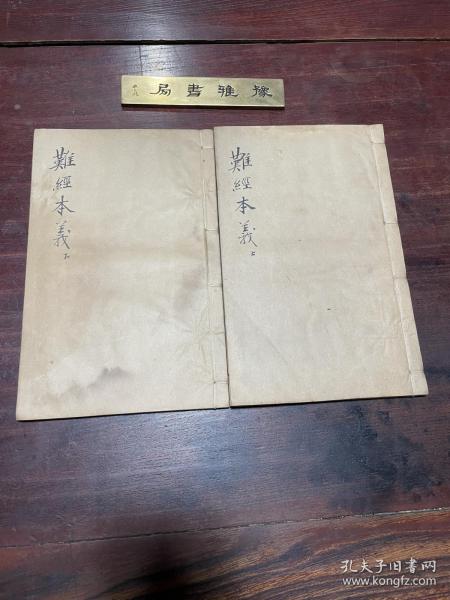 豫雅書局
難經本義上
難經本義下
孔夫子旧書网
www.kongfz.com